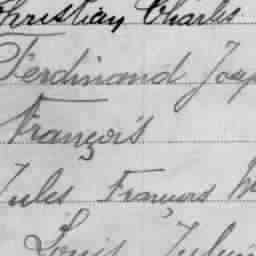 Christian Charles
Ferdinand
François
Jules François
Louis